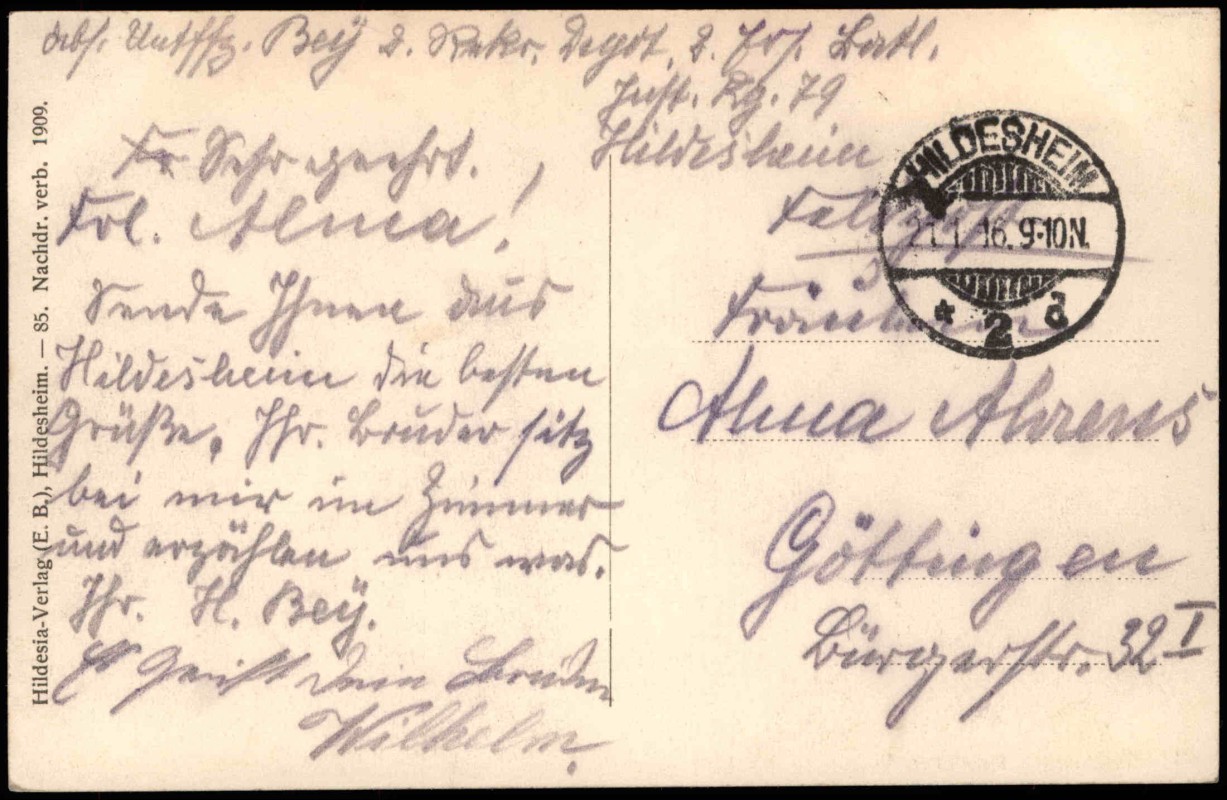 Abs. Untffz. Bey 2. Rekr. Depot. 2. Ers. Batl.
Inft. Rg. 79
Hildesheim
Sehr geehrt.
Frl. Alma!
Sende Ihnen aus
Hildesheim die besten
Grüße. Ihr. Bruder sitz
bei mir im Zimmer
und erzählen uns was.
Ihr. H. Bey.
Es Grüßt Dein Bruder
Wilhelm.
Feldpost
Fräulein
Alma Ahrens
Göttingen
Bürgerstr. 32 I
HILDESHEIM
21.1.16. 9-10N.
* 2 d
Hildesia-Verlag (E. B.), Hildesheim. — 85. Nachdr. verb. 1909.